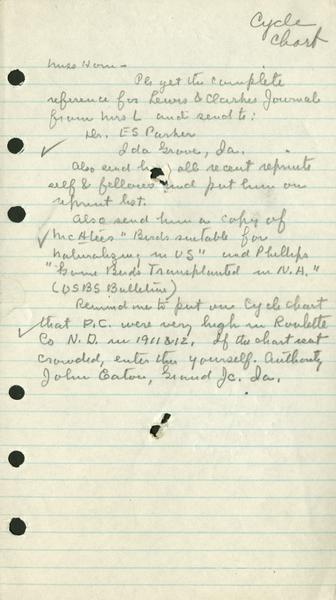 Cycle
Chart
Miss Horn -
Pls get the complete
reference for Lewis & Clarkes Journal
from Mrs L and send to:
Dr. ES Parker
Ida Grove, Ia.
Also send him all recent reprints
self & fellows and put him on
reprint list.
Also send him a copy of
McAtees "Birds suitable for
naturalizing in US" and Phillips
"Game Birds Transplanted in N.A."
(USBS Bulletin)
Remind me to put on Cycle Chart
that P.C. were very high in Roulette
Co N.D. in 1911 & 12. If the chart isnt
crowded, enter this yourself. Authority
John Eaton, Grand Jc. Ia.